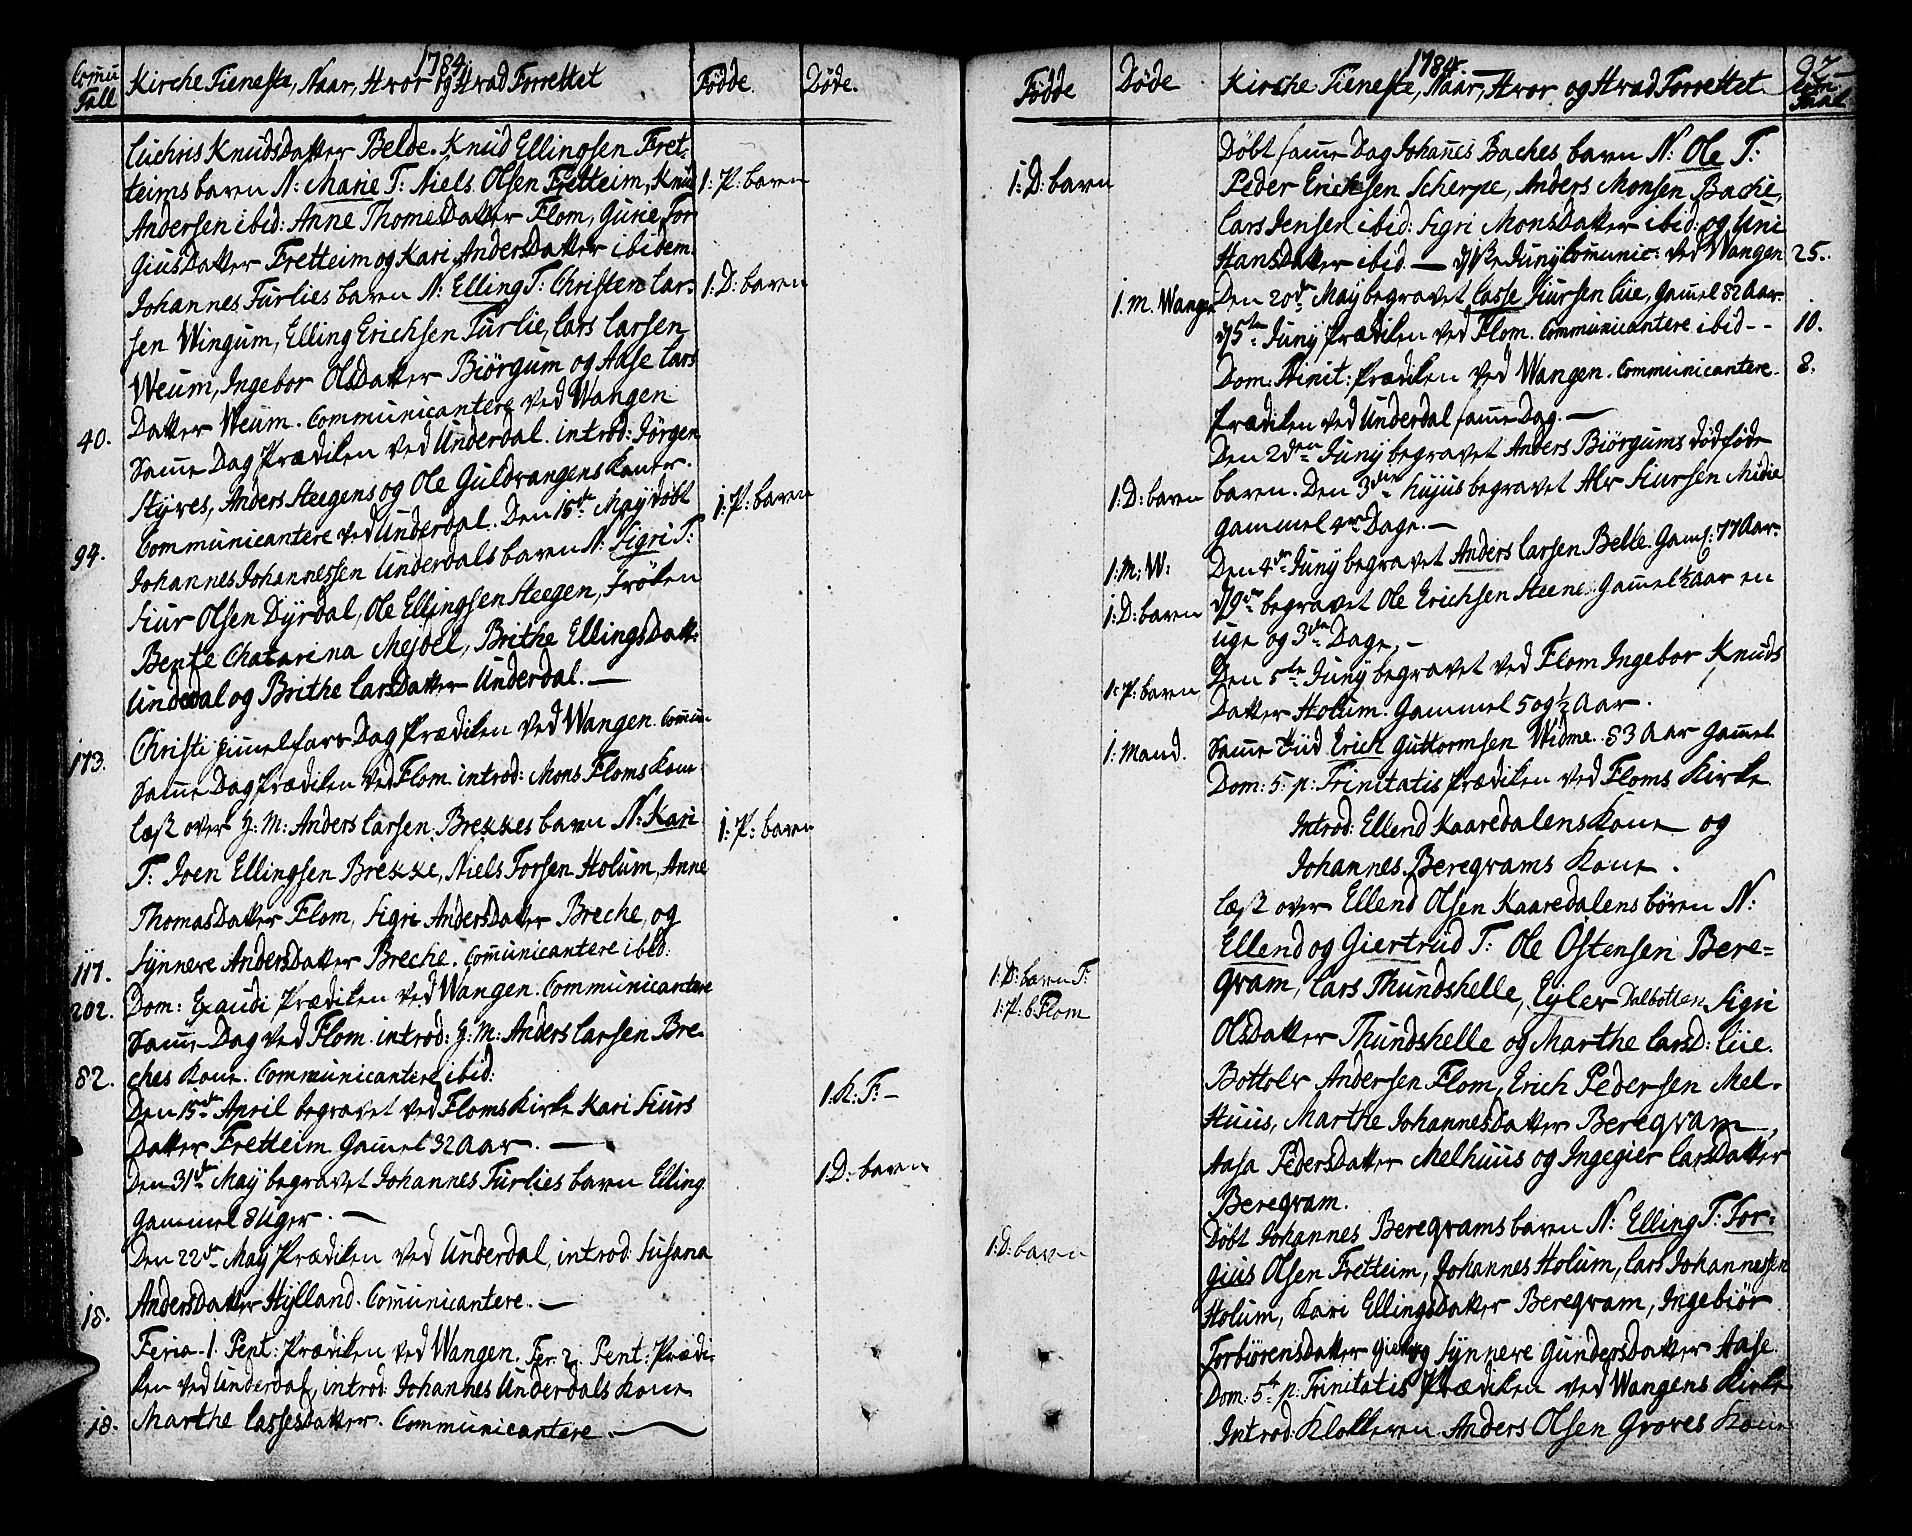 1784.
Comu Tall
Kirche Tieneste, Naar, Hvor og Hvad Forrettet
Födde.
Döde.
Cuchris KnudsDatter Belde. Knud Ellingsen Fret-
teims barn N: Marie T: Niels Olsen Fretteim, Knud
1: P: barn
Andersen ibid: Anne ThomesDatter Flom, Gurie Tor
giusDatter Fretteim og Kari AndersDatter ibidem.
Johannes Turlies barn N: Elling T: Christen Lar-
1: D: barn
sen Wingum, Elling Erichsen Turlie, Lars Larsen
Weum, Ingebor OlsDatter Biörgum og Aase Lars
Datter Weum. Communicantere ved Wangen
40.
Samme Dag Prædiken ved Underdal. introd: Jörgen
Styves, Anders Steegens og Ole Guldvangens Koner.
Communicantere ved Underdal. Den 15de May döbt
94.
1: P: barn
Johannes Johannessen Underdals barn N: Sigri T:
Siur Olsen Dyrdal, Ole Ellingsen Steegen, Fröken
Bente Chatarina Mejdel, Brithe EllingsDatt:
Undedal og Brithe LarsDatter Underdal. —
Christi Himmelfarts Dag Prædiken ved Wangen. Commun-
173.
Samme Dag Prædiken ved Flom. introd: Mons Floms Kone
Læst over H: M: Anders Larsen Brekkes barn N: Kari
1: P: barn
T: Joen Ellingsen Brekke, Niels Torsen Holum, Anne
ThomasDatter Flom, Sigri AndersDatter Breche, og
Synnere AndersDatter Breche. Communicantere ibid:
117.
Dom: Exaudi Prædiken ved Wangen. Communicantere
202.
Samme Dag ved Flom. introd: H: M: Anders Larsen Bre-
ches Kone. Communicantere ibid:
82.
Den 15de April begravet ved Floms Kirke Kari Siurs
1. K: F: —
Datter Fretteim Gamel 32 Aar. —
Den 31de May begravet Johannes Turlies barn Elling
1 D: barn
Gammel 8 Uger. —
Den 22de May Prædiken ved Underdal, introd: Susana
AndersDatter Hylland. Communicantere. —
18.
Feria 1. Pent: Prædiken ved Wangen. Fer: 2. Pent: Prædi-
ken ved Underdal, introd: Johannes Underdals Kone
Marthe LassesDatter. Communicantere. —
18.
1784.
92
Födde
Döde
Kirche Tieneste, Naar, Hvor og Hvad Forrettet
Com: Taal
Döbt samme Dag Johanes Baches barn N: Ole T:
1: D: barn
Peder Erichsen Scherpe, Anders Monsen Bache,
Lars Jensen ibid: Sigri MonsDatter ibid: og Uni
HansDatter ibid — Juny Comunic: ved Wangen
25.
Den 20de May begravet Lasse Siursen Lie, Gamel 82 Aar.
1. M. Wangen
5te Juny Prædiken ved Flom. Communicantere ibid - -
10.
Dom: Trinit: Prædiken ved Wangen. Communicantere.
8.
Prædiken ved Underdal samme Dag. —
Den 2den Juny begravet Anders Biörgums dödföde
barn. Den 3die hujus begravet Alv Siursen Midie
1: D: barn
gammel Dage. —
Den 4de Juny begravet Anders Larsen Belle. Gaml: 77 Aar.
1: M: W:
9de begravet Ole Erichsen Steene Gamel ½ Aar en
1: D: barn
uge og 3de Dage, —
Den 5te Juny begravet ved Flom Ingebor Knuds
1: P: barn
Datter Holum. Gammel 5 og ½ Aar.
Samme Tiid Erich Guttormsen Widme. 83 Aar Gamel
1: Mand.
Dom: 5: p: Trinitatis Prædiken ved Floms Kirke
Introd: Ellend Kaaredalens Kone og
Johannes Beregvams Kone.
Læst over Ellend Olsen Kaaredalens börn N:
Ellend og Giertrud T: Ole Ostensen Bere=
1: D: barn F:
gvam, Lars Thundshelle, Eyler Dalbotten Sigri
1: P: b: Flom
OlsDatter Thundshelle og Marthe LarsD: Lie.
Bottolv Andersen Flom, Erich Pedersen Mel-
Huus, Marthe JohannesDatter Beregvam,
Aasa PedersDatter Melhuus og Ingegier LarsDatter
Beregvam.
Döbt Johannes Beregvams barn N: Elling T: Tor-
1: D: barn
gius Olsen Fretteim, Johannes Holum, Lars Johannessen
Holum, Kari EllingsDatter Beregvam, Ingebiör
TorbiörensDatter og Synnere GundersDatter Aase.
Dom: 5te p: Trinitatis Prædiken ved Wangens Kirke
Introd: Klokkeren Anders Olsen Groves Kone